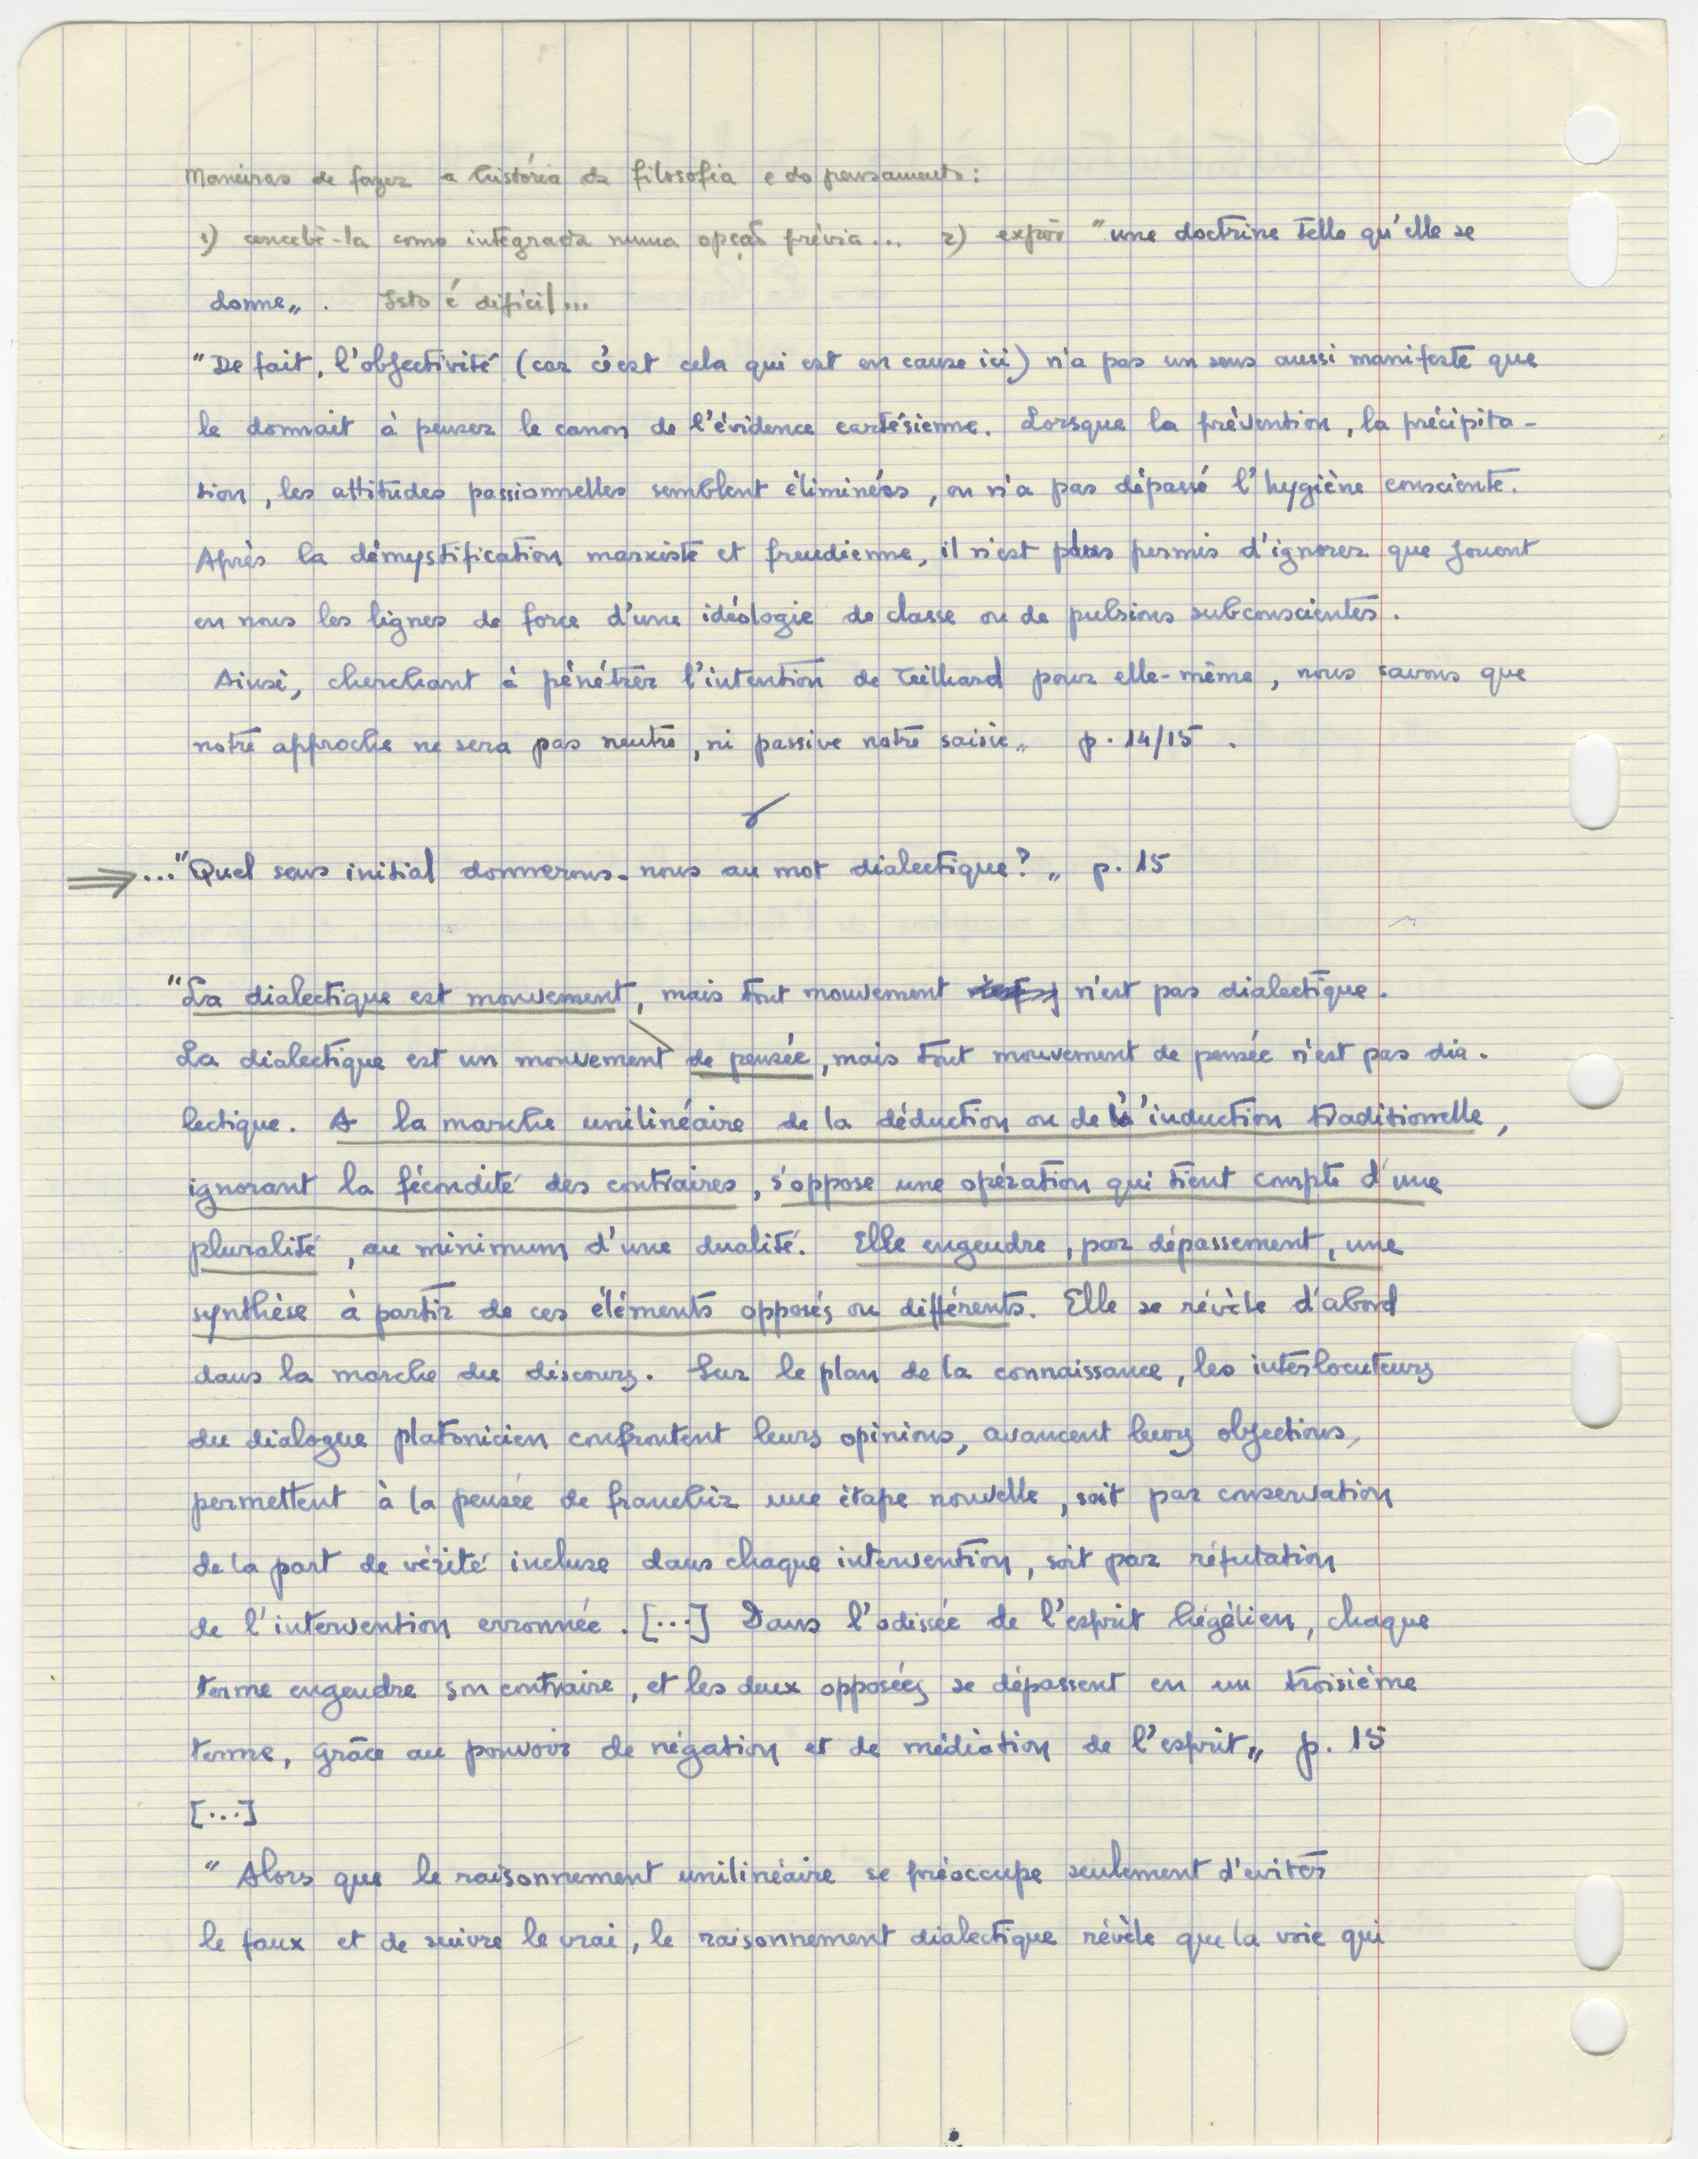 Maneiras de fazer a história da filosofia e do pensamento:
1) concebê-la como integrada numa opção prévia... 2) expôr "une doctrine telle qu'elle se
donne„. Isto é difícil...
"De fait, l'objectivité (car c'est cela qui est en cause ici) n'a pas un sens aussi manifeste que
le donnait à penser le canon de l'évidence cartésienne. Lorsque la prévention, la précipita-
tion, les attitudes passionnelles semblent éliminées, on n'a pas dépassé l'hygiène consciente.
Après la démystification marxiste et freudienne, il n'est plus permis d'ignorer que jouent
en nous les lignes de force d'une idéologie de classe ou de pulsions subconscientes.
Ainsi, cherchant à pénétrer l'intention de Teilhard pour elle-même, nous savons que
notre approche ne sera pas neutre, ni passive notre saisie„ p. 14/15.
⇒..."Quel sens initial donnerons-nous au mot dialectique?„ p. 15
"La dialectique est mouvement, mais tout mouvement n'est pas dialectique.
La dialectique est un mouvement de pensée, mais tout mouvement de pensée n'est pas dia-
lectique. A la marche unilinéaire de la déduction ou de l'induction traditionnelle,
ignorant la fécondité des contraires, s'oppose une opération qui tient compte d'une
pluralité, au minimum d'une dualité. Elle engendre, par dépassement, une
synthèse à partir de ces éléments opposés ou différents. Elle se révèle d'abord
dans la marche du discours. Sur le plan de la connaissance, les interlocuteurs
du dialogue platonicien confrontent leurs opinions, avancent leurs objections,
permettent à la pensée de franchir une étape nouvelle, soit par conservation
de la part de vérité incluse dans chaque intervention, soit par réfutation
de l'intervention erronnée. [...] Dans l'odissée de l'esprit hégélien, chaque
terme engendre son contraire, et les deux opposées se dépassent en un troisième
terme, grâce au pouvoir de négation et de médiation de l'esprit„ p. 15
[...]
"Alors que le raisonnement unilinéaire se préoccupe seulement d'eviter
le faux et de suivre le vrai, le raisonnement dialectique révèle que la voie qui